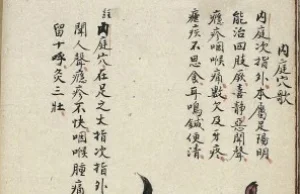 内庭穴歌
内庭次指外本屬足陽明
能治四肢厥喜靜惡聞聲
癮疹咽喉痛數欠及牙疼
瘧疾不思食耳鳴鍼便清
註内庭穴在足之大指次指外
聞人聲癮疹不快咽喉腫痛
留十呼灸三壯